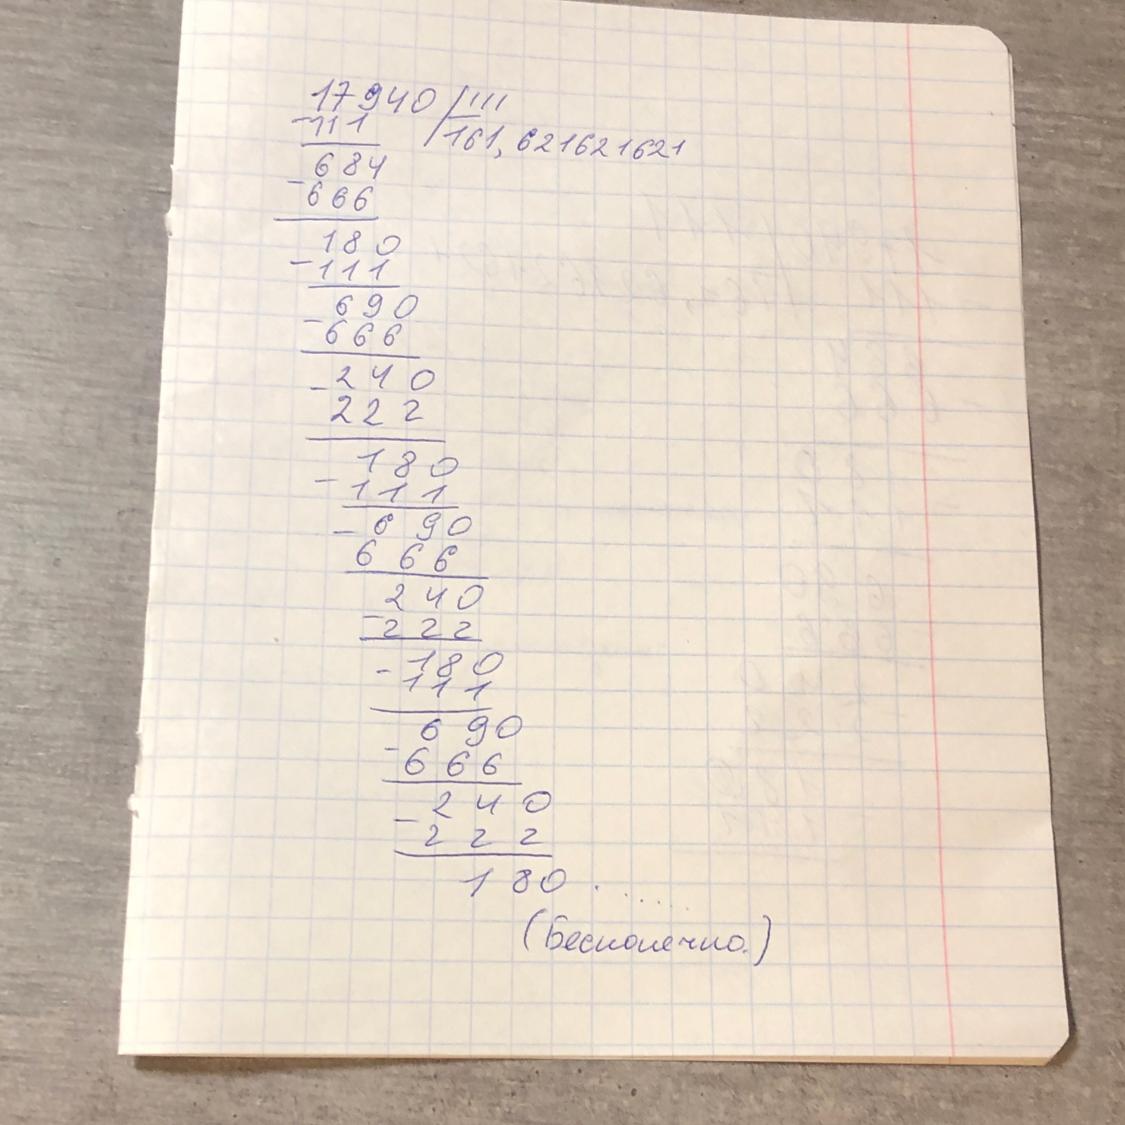 17940 111
- 111 161, 621621621
684
- 666
180
- 111
690
- 666
- 240
222
180
- 111
- 690
666
240
- 222
- 180
111
690
- 666
- 240
222
180 . . . . . .
(Бесконечно.)